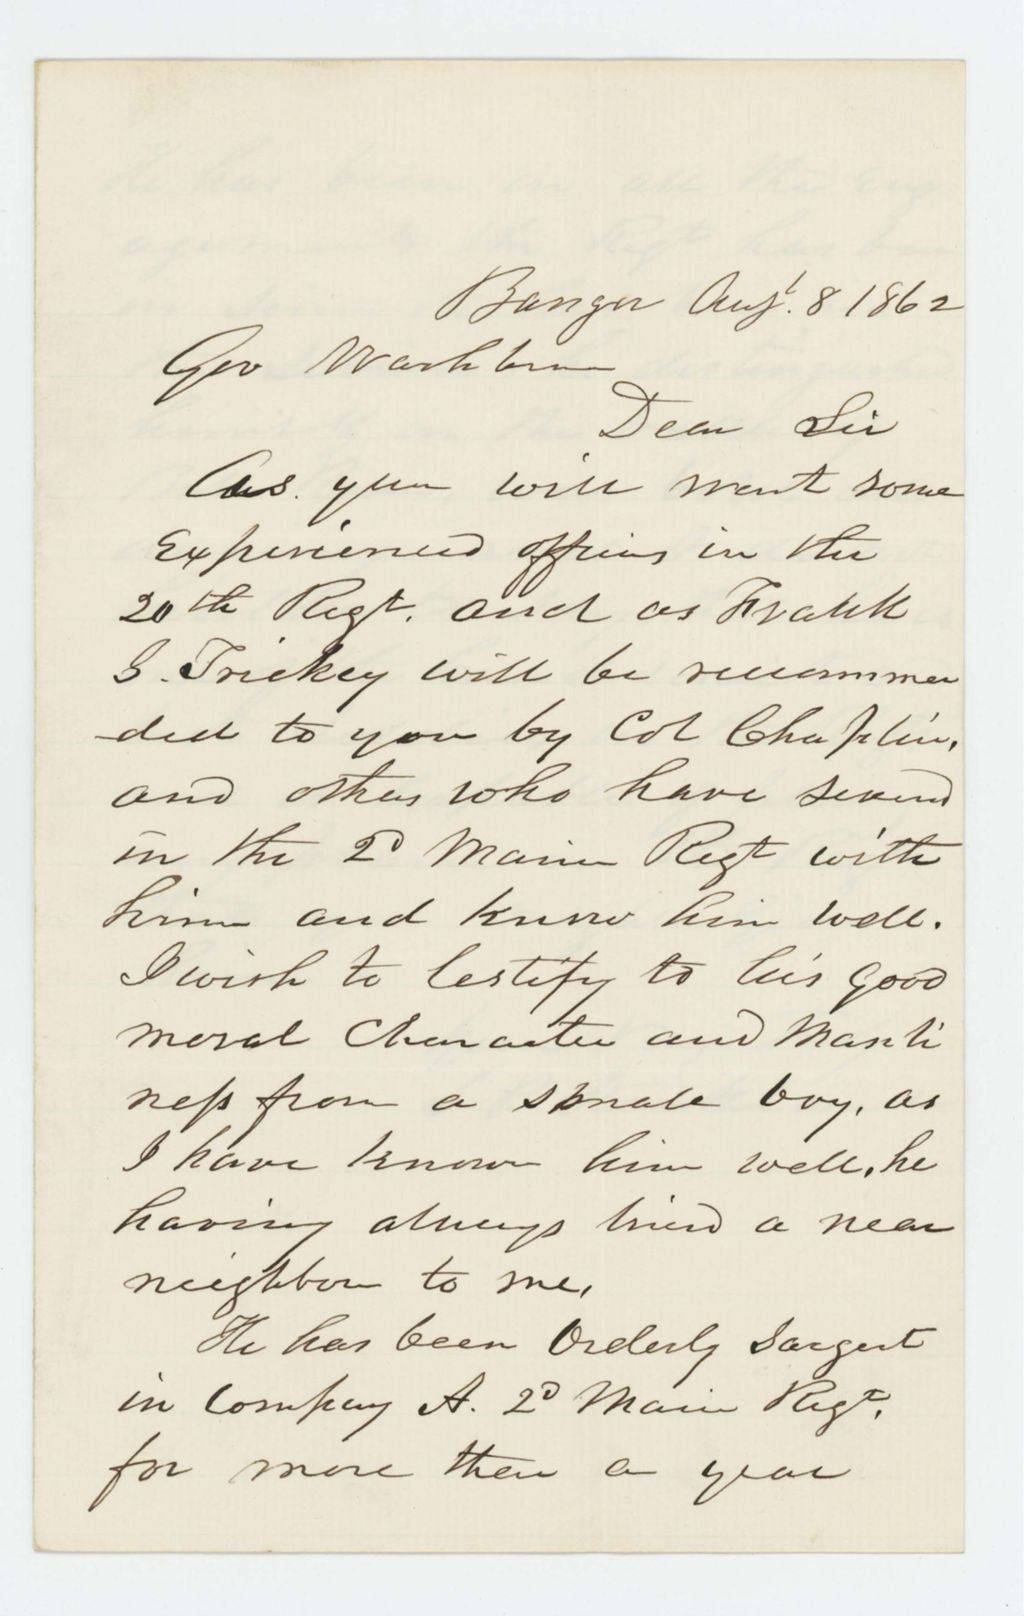 Bangor Augt. 8 1862
Gov Washburn
Dear Sir
As you will want some
Experienced officers in the
20th Regt. and as Frank
G. Trickey will be recommen
ded to you by Col Chaplin,
and others who have served
in the 2D Maine Regt with
him and know him well.
I wish to testify to his good
moral Character and Manli
ness from a small boy, as
I have known him well, he
having always lived a near
neighbor to me,
He has been Orderly Sargent
in Company A. 2D Maine Regt.
for more than a year